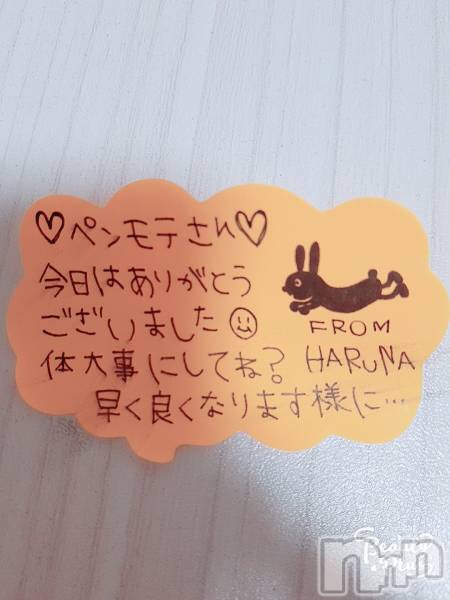 ♡ペンモテさん♡
今日はありがとう
ございました☺
体大事にしてね?
早く良くなります様に…
FROM
HARUNA